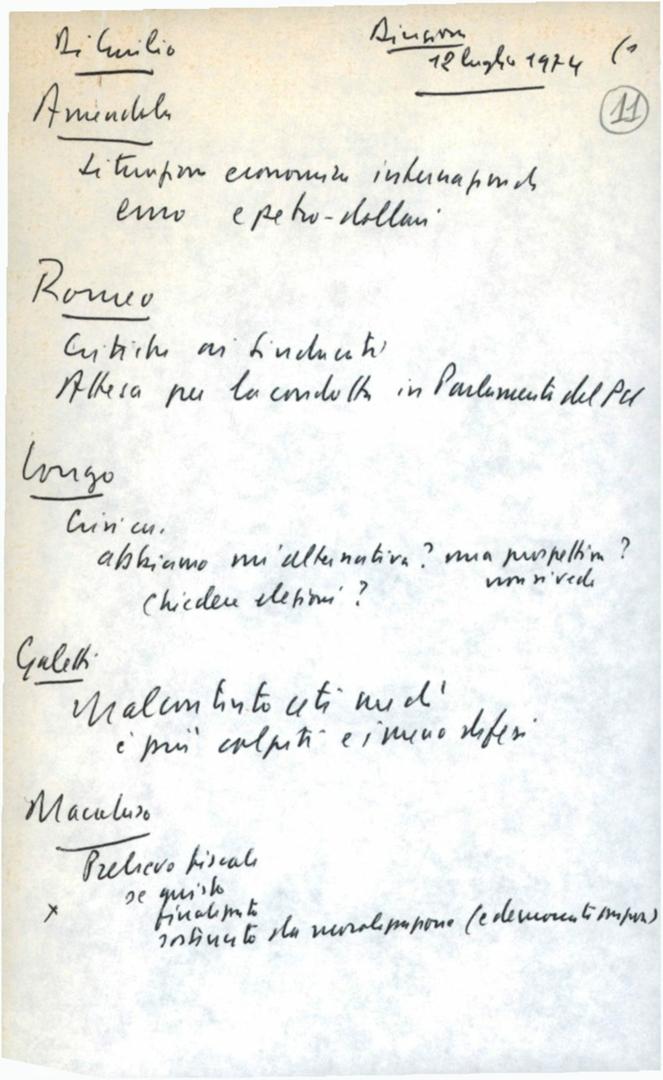 Di Giulio
Direzione
12 luglio 1974 (1
11
Amendola
Situazione economica internazionale
euro e petro-dollari
Romeo
Critiche ai sindacati
Attesa per la condotta in Parlamento del PCI
Longo
Crisi
abbiamo un'alternativa? una prospettiva?
non si vede
Chiedere elezioni?
Galetti
Malcontento ceti medi
i più colpiti e i meno difesi
Macaluso
Prelievo fiscale
se giusto
x finalizzato
sostenuto da moralizzazione (e democratizzazione)